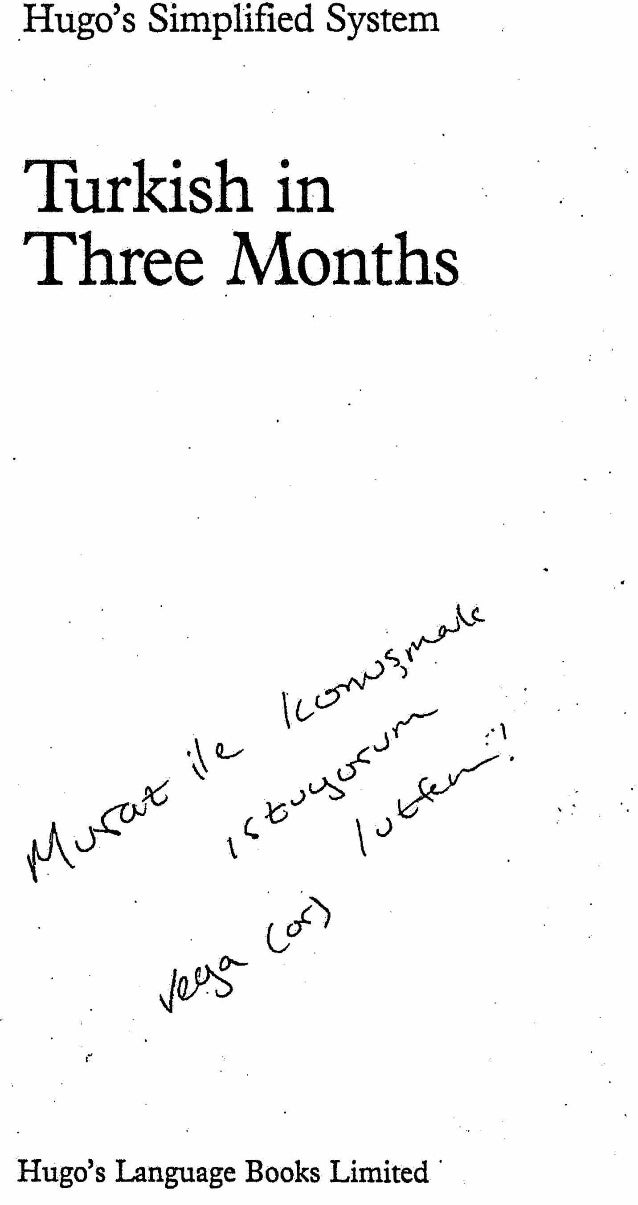 Hugo's Simplified System
Turkish in
Three Months
Murat ile konuşmak
ıstuyorum
lutfen!
veya (or)
Hugo's Language Books Limited